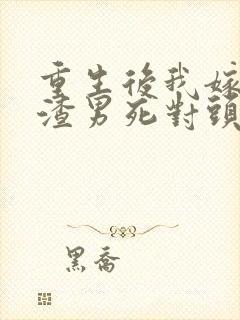 重生後我嫁
渣男死對頭
黑喬